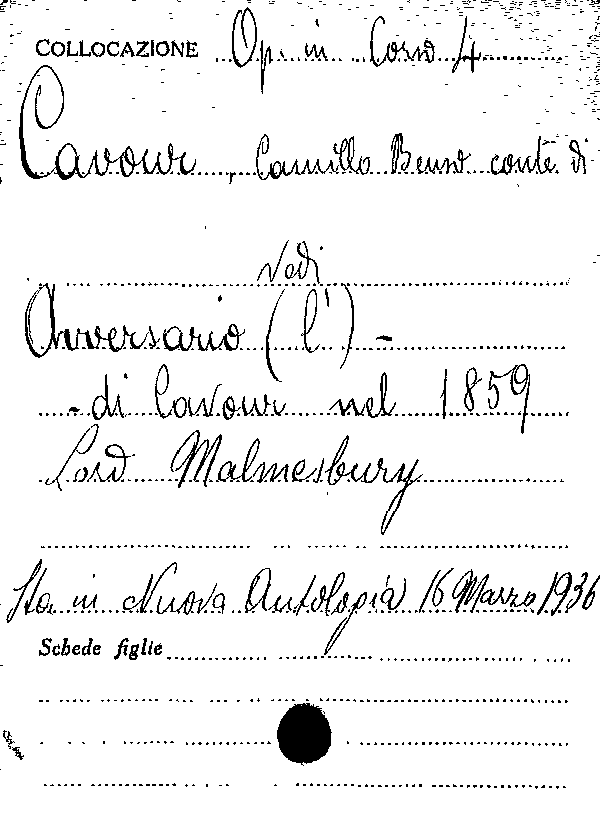 COLLOCAZIONE Op. in Corso 4
Cavour, Camillo Benso conte di
Vedi
Avversario (l') -
- di Cavour nel 1859
Lord Malmesbury
Sta in Nuova Antologia 16 Marzo 1936
Schede figlie